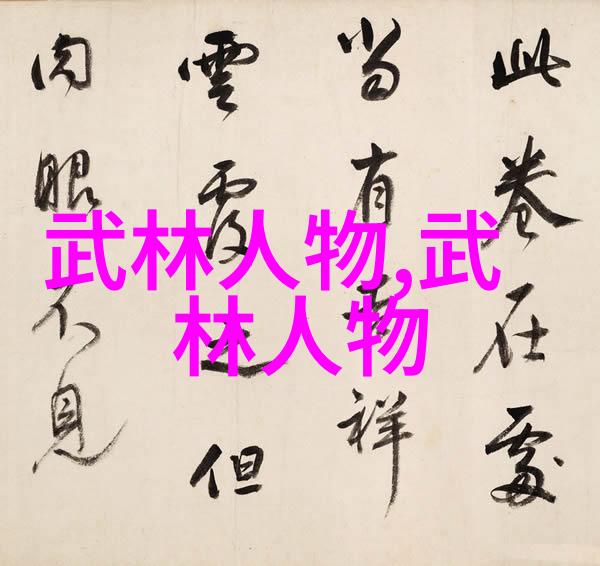 此卷在處
當有吉祥
雲覆之但
肉眼不見
武林人物,武
林人物